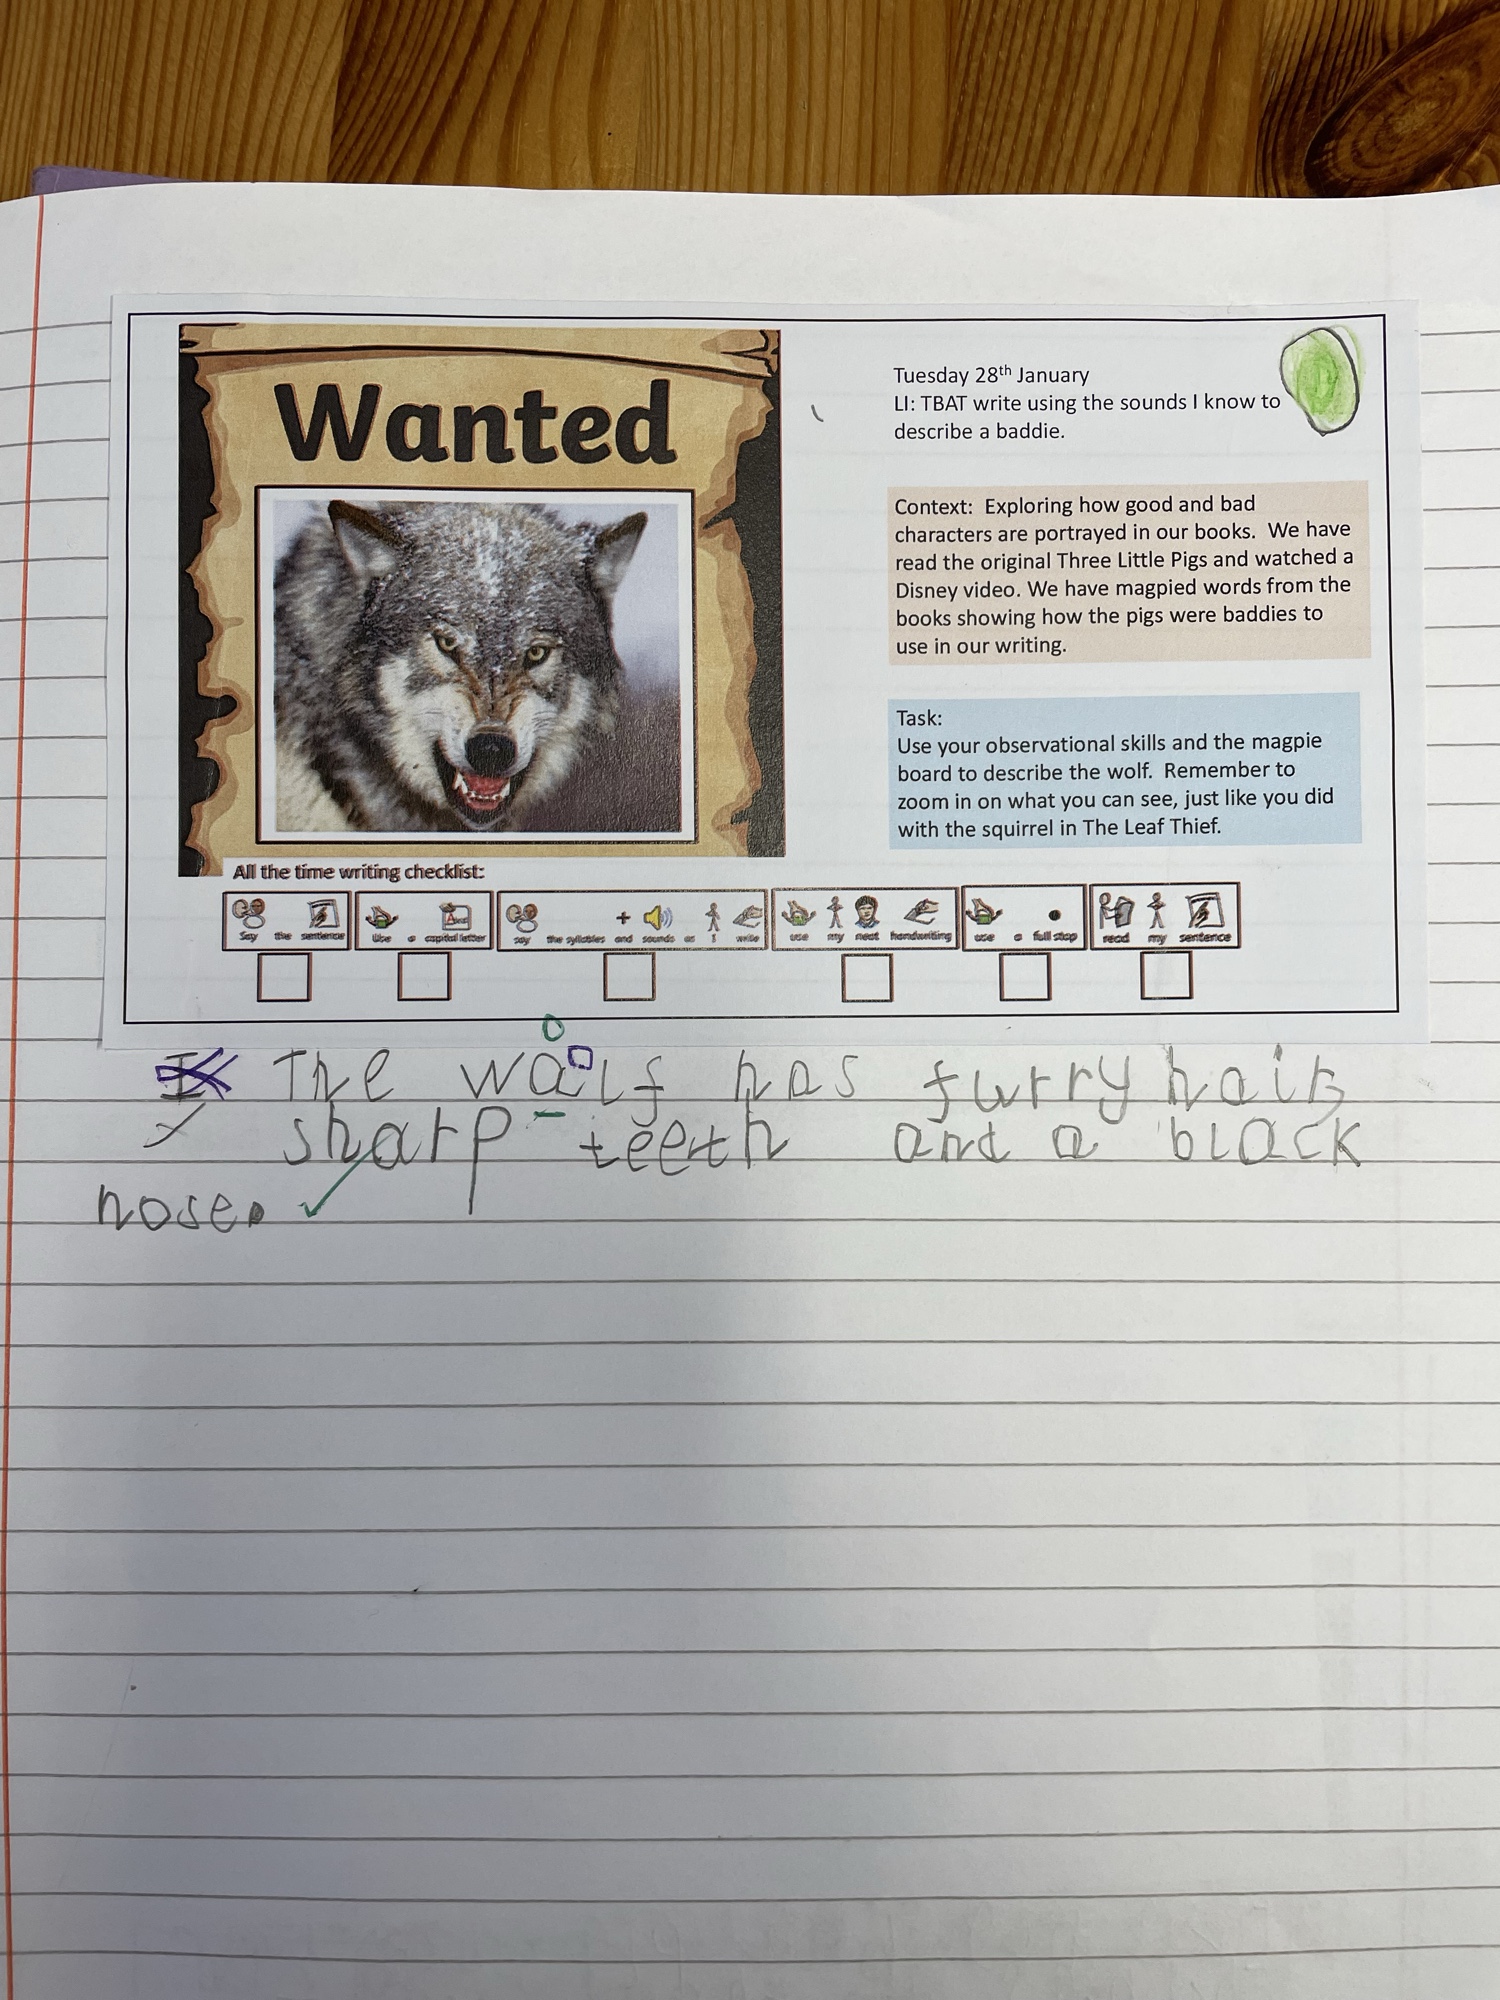 Wanted
Tuesday 28th January
LI: TBAT write using the sounds I know to
describe a baddie.
Context: Exploring how good and bad
characters are portrayed in our books. We have
read the original Three Little Pigs and watched a
Disney video. We have magpied words from the
books showing how the pigs were baddies to
use in our writing.
Task:
Use your observational skills and the magpie
board to describe the wolf. Remember to
zoom in on what you can see, just like you did
with the squirrel in The Leaf Thief.
All the time writing checklist:
Say the sentence
Use a capital letter
say the syllables and sounds as I write
use my neat handwriting
use a full stop
read my sentence
The walf has furry hair
sharp teeth and a black
nose.